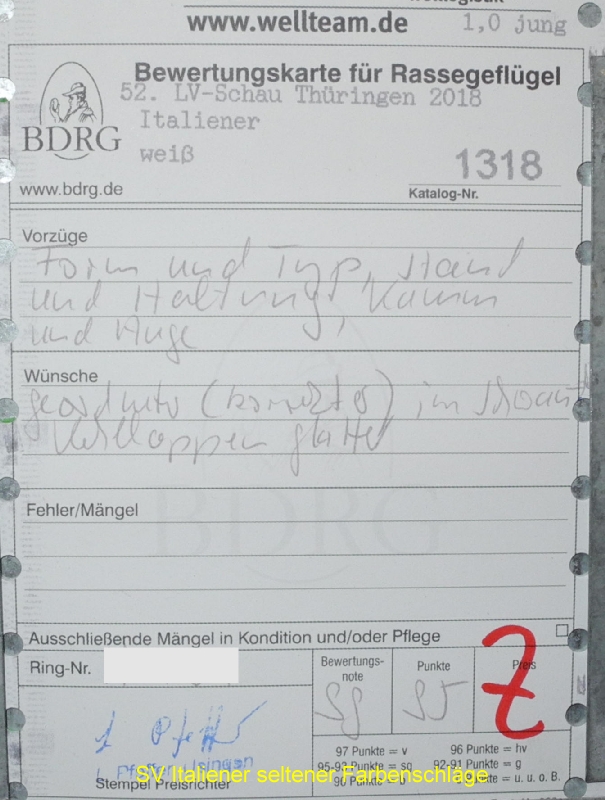 www.wellteam.de
1,0 jung
Bewertungskarte für Rassegeflügel
52. LV-Schau Thüringen 2018
Italiener
BDRG
weiß
1318
www.bdrg.de
Katalog-Nr.
Vorzüge
Form und Typ, Stand
und Haltung, Kamm
und Auge
Wünsche
geordneter (korrekter) im
Kehllappen glatter
Fehler/Mängel
BDRG
Ausschließende Mängel in Kondition und/oder Pflege
Ring-Nr.
Bewertungs-
note
Punkte
Preis
sg
95
Z
Pfeffer
97 Punkte = v
96 Punkte = hv
95-93 Punkte = sg
92-91 Punkte = g
90 Punkte = b
Punkte = u. u. o. B.
Stempel Preisrichter
SV Italiener seltener Farbenschläge